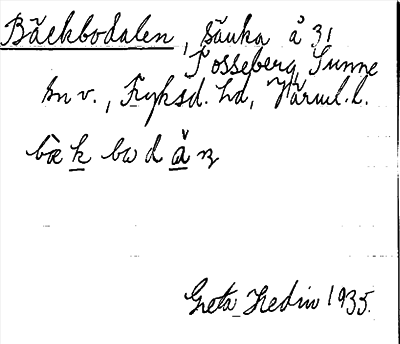 Bäckbodalen, sänka å 31
Fosseberg, Sunne
sn v., Fryksd. hd, Värml. l.
bæ̀k bω dạ̌n
Greta Hedin 1935.